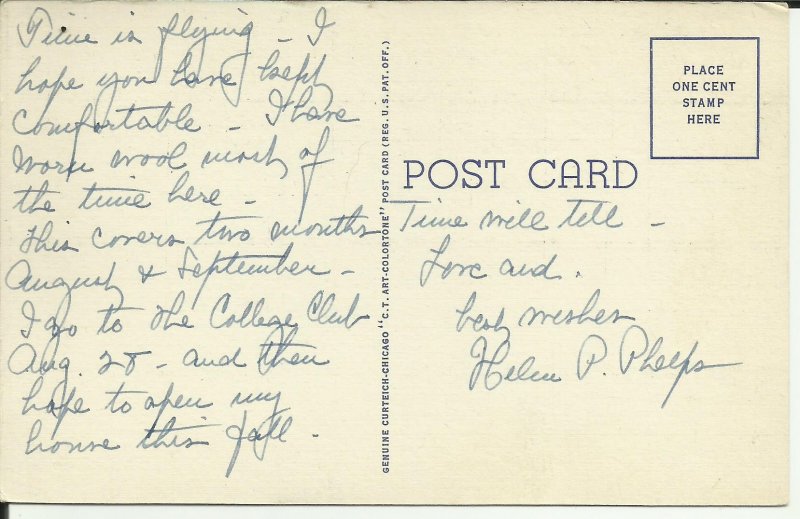 Time is flying - I
hope you have kept
comfortable - I have
worn wool most of
the time here -
This covers two months
August & September -
I go to the College Club
Aug. 28 - and then
hope to open my
house this fall.
GENUINE CURTEICH-CHICAGO "C.T. ART-COLORTONE" POST CARD (REG. U.S. PAT. OFF.)
PLACE
ONE CENT
STAMP
HERE
POST CARD
Time will tell -
Love and
best wishes
Helen P. Phelps